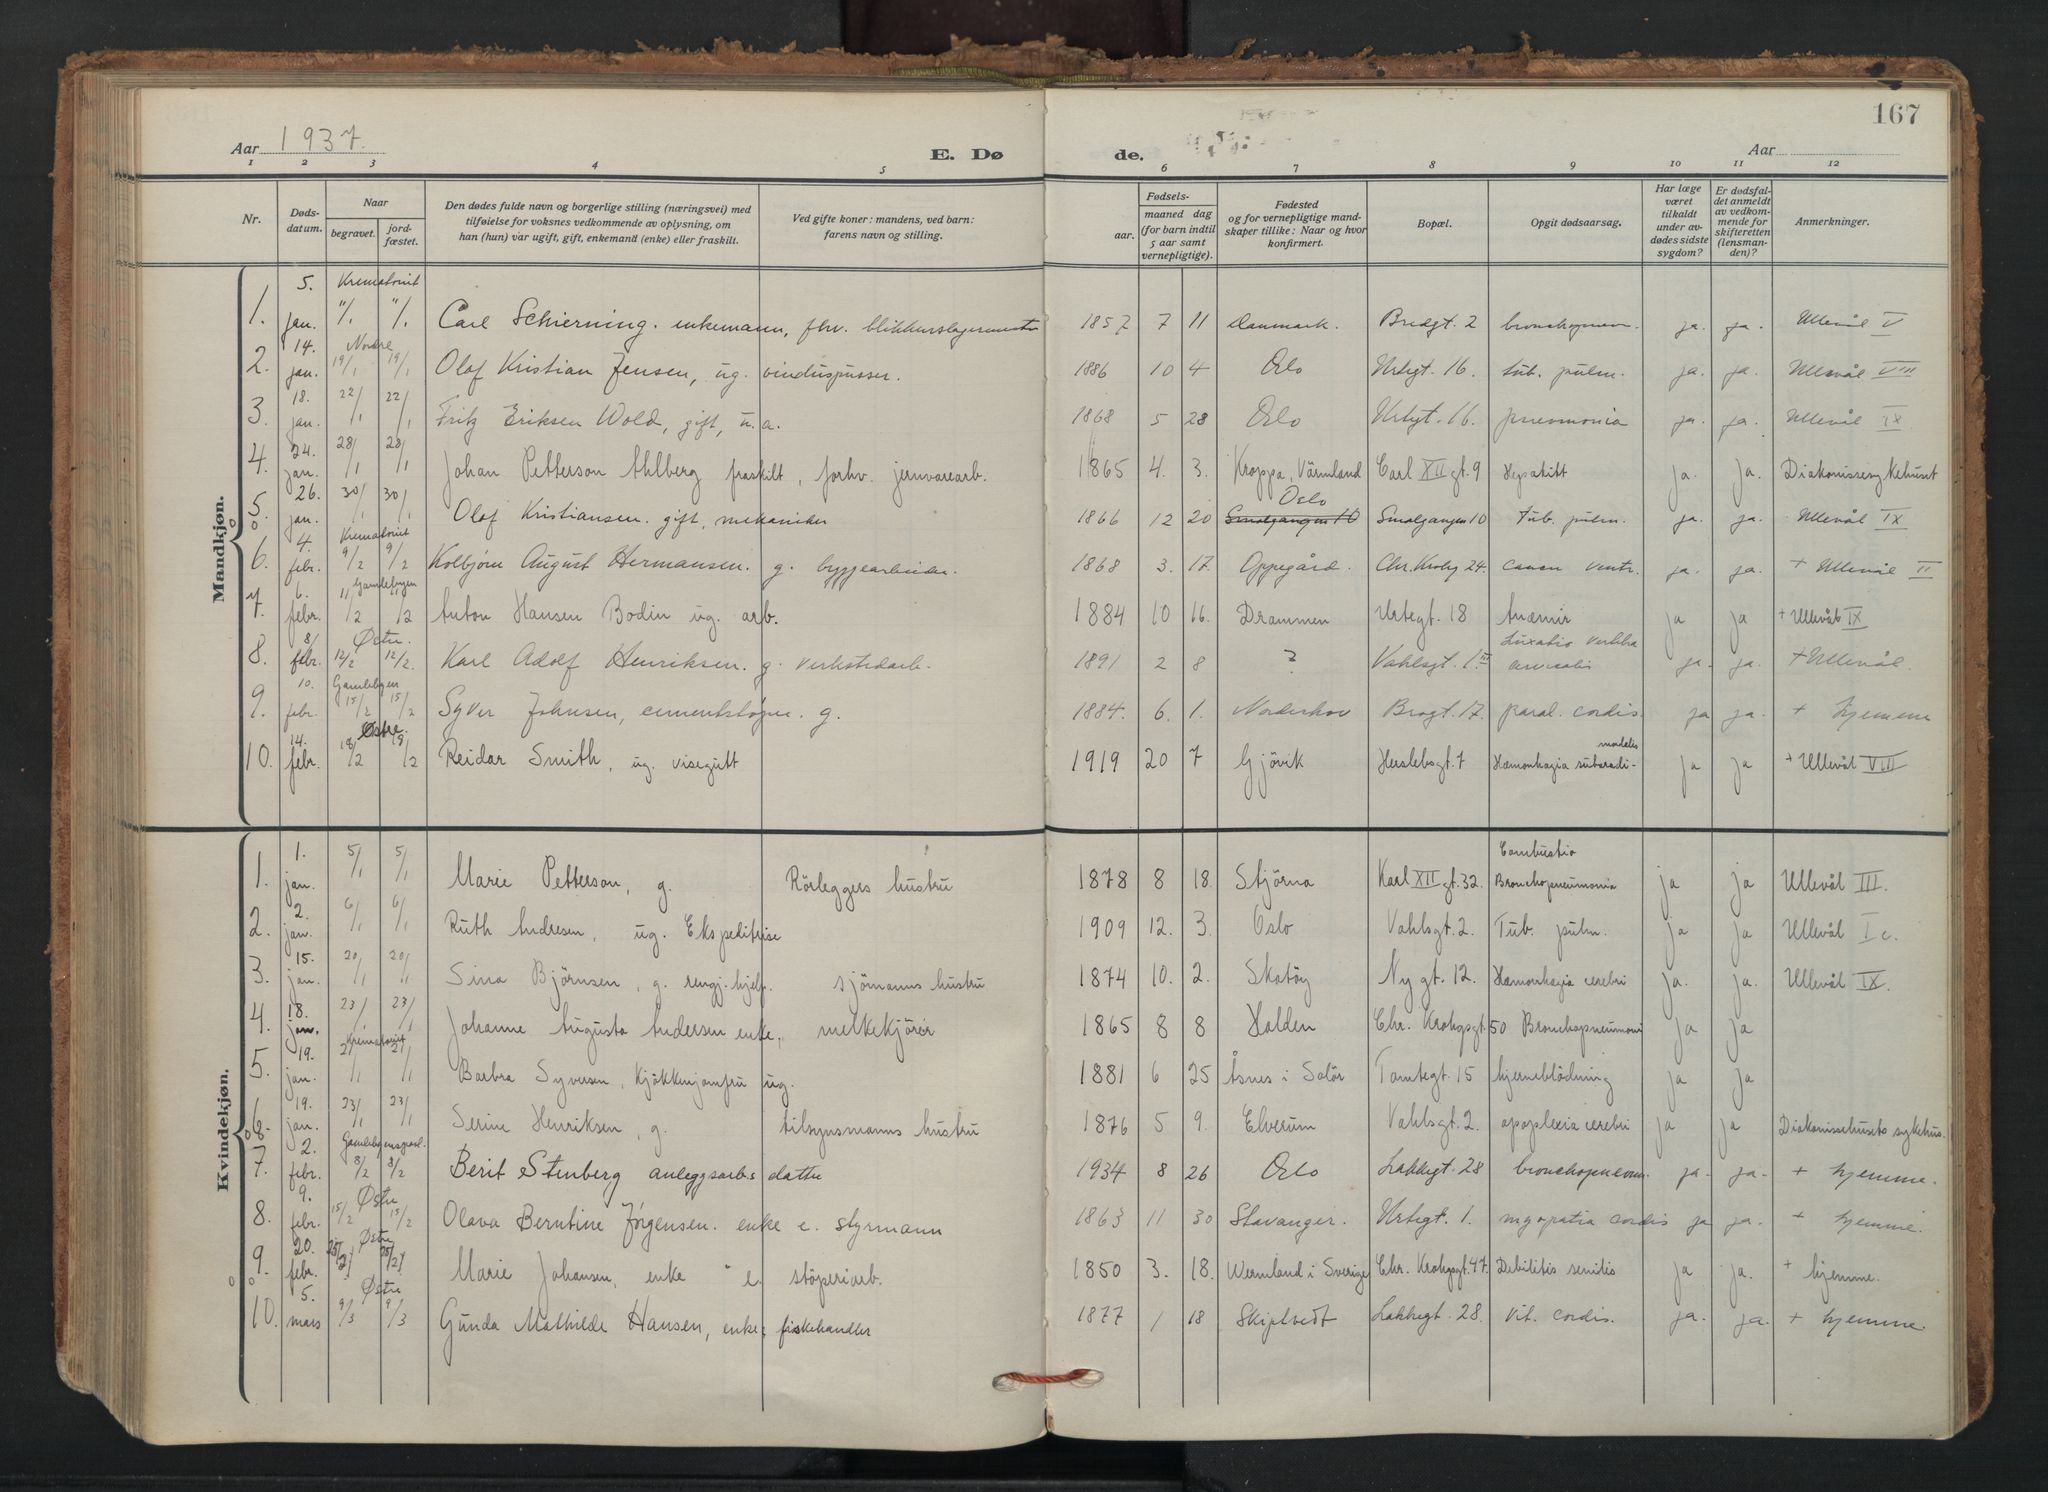 Aar 1937.
E. Dø
de.
167
Aar
1 2 3 4 5 6 7 8 9 10 11 12
Nr.
Døds-datum.
Naar
begravet.
jord-fæstet.
Den dødes fulde navn og borgerlige stilling (næringsvei) med tilføielse for voksnes vedkommende av oplysning, om han (hun) var ugift, gift, enkemand (enke) eller fraskilt.
Ved gifte koner: mandens, ved barn: farens navn og stilling.
Fødsels-
aar.
maaned dag (for barn indtil 5 aar samt vernepligtige).
Fødested og for vernepligtige mandskaper tillike: Naar og hvor konfirmert.
Bopæl.
Opgit dødsaarsag.
Har læge været tilkaldt under avdødes sidste sygdom?
Er dødsfaldet anmeldt av vedkommende for skifteretten (lensmanden)?
Anmerkninger.
Mandkjøn.
1. 5. jan. Krematoriet "/1 "/1 Carl Schierning. enkemann, fhv. blikkenslagermester 1857 7 11 Danmark. Bredgt. 2 bronchopneu. ja. ja. Ullevål V
2. 14. jan. Nordre 19/1 19/1 Olaf Kristian Jensen, ug. vinduspusser. 1886 10 4 Oslo Urtegt. 16. tub. pulm. ja. ja. Ullevål VIII
3. 18. jan. 22/1 22/1 Fritz Eriksen Wold, gift, u.a. 1868 5 28 Oslo Urtegt. 16. pneumonia ja. ja. Ullevål IX
4. 24. jan. 28/1 28/1 Johan Petterson Ahlberg fraskilt, forhv. jernvarearb. 1865 4. 3. Kroppa, Värmland Carl XII gt. 9 Hepatitt ja. ja. Diakonissesykehuset
5. 26. jan. 30/1 30/1 Olaf Kristiansen. gift, mekaniker 1866 12 20 Smalgangen 10 Oslo Smalgangen 10 Tub. pulm. ja. ja. Ullevål IX
6. 4. febr. Krematoriet 9/2 9/2 Kolbjørn August Hermansen. g. byggearbeider. 1868 3. 17. Oppegård. Chr. Krohg 24. cancer ventr. ja. ja. + Ullevål II
7. 6. febr. Gamlebyen 11/2 11/2 Anton Hansen Bodin ug. arb. 1884 10 16. Drammen Urtegt. 18 Anæmir ja ja + Ullevål IX
8. 8/ febr. Østre. 12/2 12/2. Karl Adolf Henriksen. g. verkstedarb. 1891 2 8 ? Vahlsgt. 1.III Luxatio vertebra cervicalis ja. ja. + Ullevål.
9. 10. febr. Gamlebyen 15/2 15/2 Syver Johnsen, cementstøper. g. 1884. 6. 1. Norderhov Brogt. 17. paral. cordis. ja ja. + hjemme
10. 14. febr. Østre. 18/2 18/2 Reidar Smith, ug. visegutt 1919 20 7 Gjövik Herslebsgt. 7 Hæmorrhagia subaradi- ja ja + Ullevål VIII
Kvindekjøn.
1. 1. jan. 5/1 5/1 Marie Petterson, g. Rörleggers hustru 1878 8 18. Stjörna Karl XII gt. 32. Combustio Bronchopneumonia ja ja Ullevål III.
2. 2. jan. 6/1 6/1 Ruth Andresen, ug. Ekspeditrise 1909 12. 3. Oslo Vahlsgt. 2. Tub. pulm. ja ja Ullevål I c.
3. 15. jan. 20/1 20/1 Sina Björnsen, g. rengj. hjelp. sjömanns hustru 1874 10. 2. Skatöy Nygt. 12. Hæmorrhagia cerebri ja. ja. Ullevål IX.
4. 18. jan. 23/1 23/1 Johanne Augusta Andersen enke, melkekjörer 1865 8 8 Halden Chr. Krohgsgt. 50 Bronchopneumoni ja ja
5. 19. jan. Krematoriet 21/1 21/1 Barbra Syversen, kjökkenjomfru ug. 1881 6 25 Åsnes i Solör Tomtegt. 15 hjerneblödning ja ja
6. 19. jan. 23/1 23/1 Serine Henriksen, g. tilsynsmanns hustru 1876 5 9. Elverum Vahlsgt. 2. apoplexia cerebri ja ja Diakonissehusets sykehus.
7. 2. febr. Gamlebyens gravl. 8/2 8/2 Berit Stenberg anleggsarb.s datter 1934 8 26 Oslo Lakkegt. 28 bronchopneum. ja. ja. + hjemme.
8. 9. febr. Østre 15/2 15/2 Olava Berntine Jörgensen. enke e. styrmann 1863 11 30 Stavanger. Urtegt. 1. myopatia cordis ja ja. + hjemme.
9. 20. febr. Østre 25/2 25/2 Marie Johansen, enke e. stöperiarb. 1850 3. 18. Wermland i Sverige Chr. Krohgsgt. 47. Debilitis senilis ja ja. + hjemme.
10. 5. mars Østre 9/3 9/3 Gunda Mathilde Hansen, enke, fiskehandler 1877 1 18 Skiptvedt Lakkegt. 28. vit. cordis. ja. ja. + hjemme.